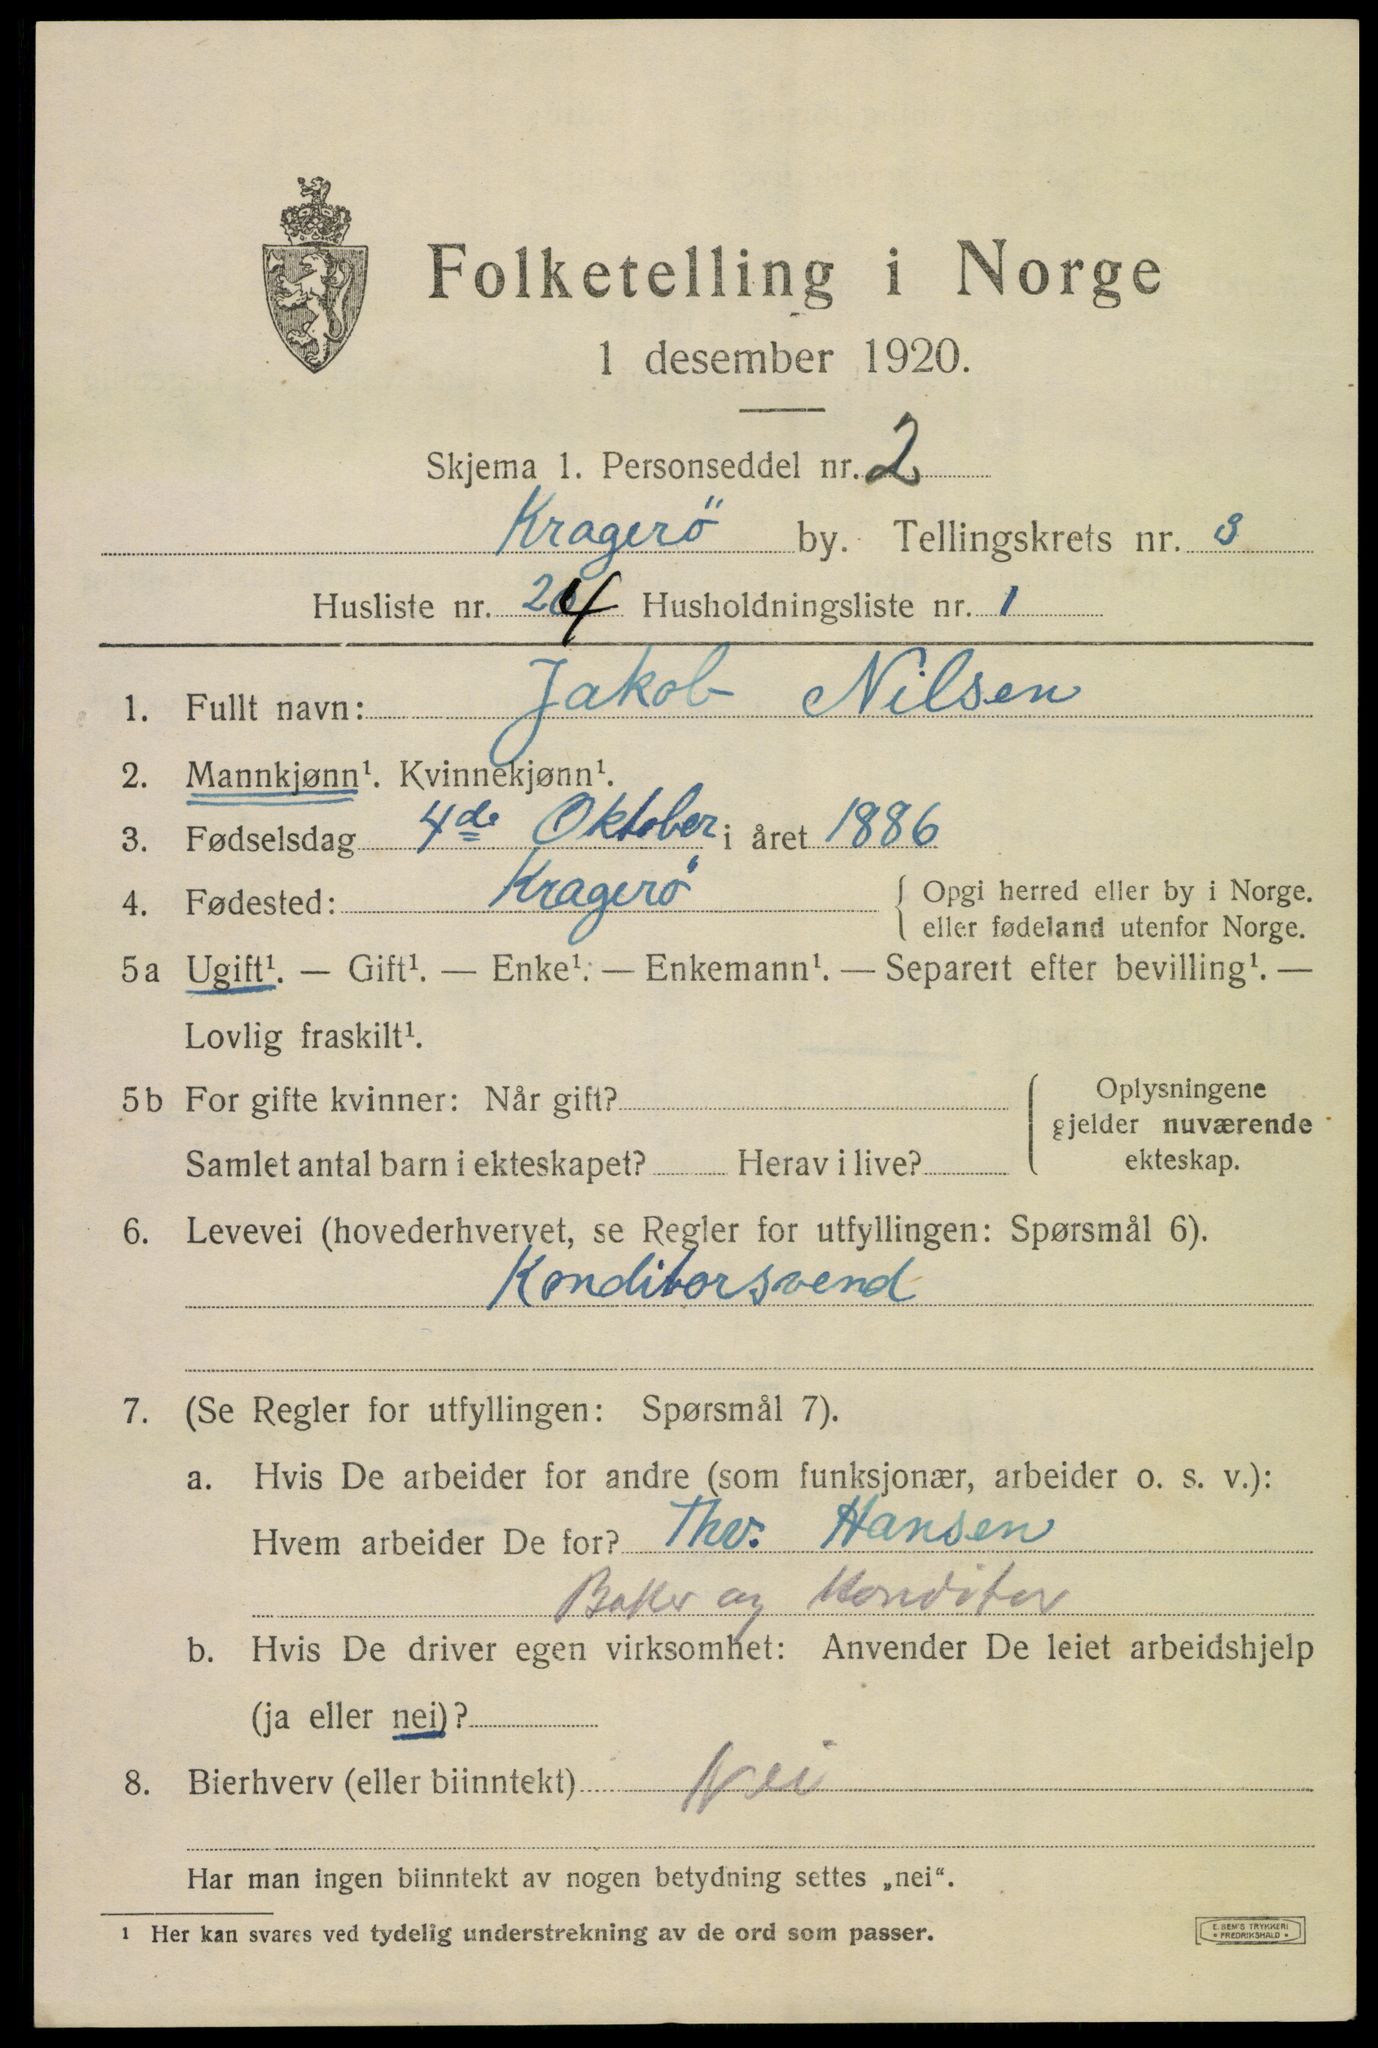 Folketelling i Norge
1 desember 1920.
Skjema 1. Personseddel nr. 2
Kragerö by. Tellingskrets nr. 3
Husliste nr. 24 Husholdningsliste nr. 1
1. Fullt navn: Jakob Nilsen
2. Mannkjønn¹. Kvinnekjønn¹.
3. Fødselsdag 4de Oktober i året 1886
4. Fødested: Kragerö { Opgi herred eller by i Norge.
eller fødeland utenfor Norge.
5a Ugift¹. — Gift¹. — Enke¹. — Enkemann¹. — Separert efter bevilling¹. —
Lovlig fraskilt¹.
5b For gifte kvinner: Når gift? { Oplysningene
gjelder nuværende
Samlet antal barn i ekteskapet? Herav i live? ekteskap.
6. Levevei (hovederhvervet, se Regler for utfyllingen: Spørsmål 6).
Konditorsvend
7. (Se Regler for utfyllingen: Spørsmål 7).
a. Hvis De arbeider for andre (som funksjonær, arbeider o. s. v.):
Hvem arbeider De for? Thv. Hansen
Baker og Konditor
b. Hvis De driver egen virksomhet: Anvender De leiet arbeidshjelp
(ja eller nei)?
8. Bierhverv (eller biinntekt) Nei
Har man ingen biinntekt av nogen betydning settes „nei“.
¹ Her kan svares ved tydelig understrekning av de ord som passer.
E. SEM'S TRYKKERI
• FREDRIKSHALD •